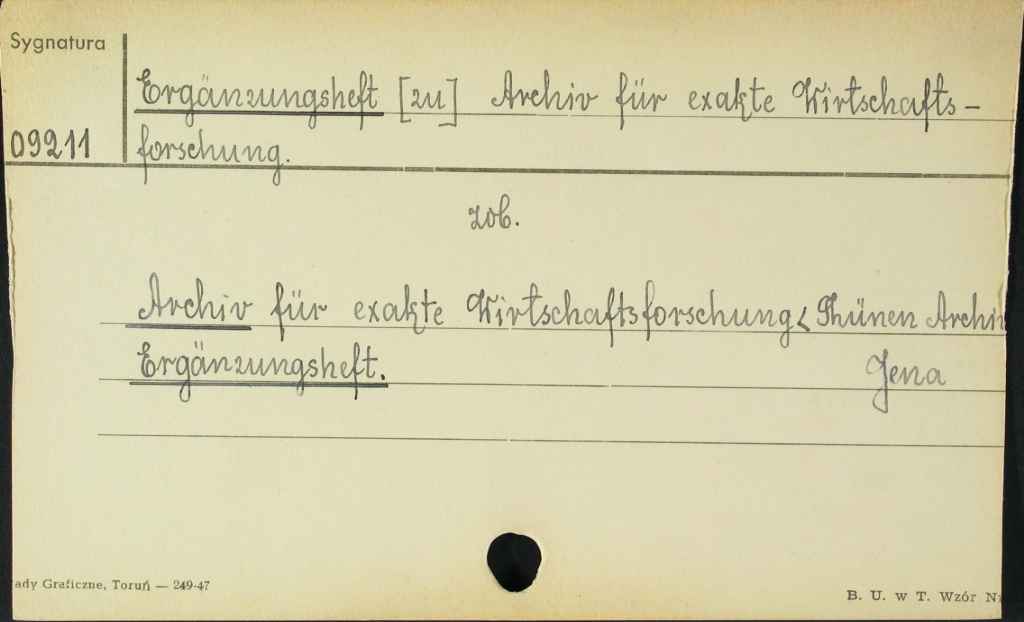 Sygnatura
Ergänzungsheft [zu] Archiv für exakte Wirtschafts-
09211 forschung.
zob.
Archiv für exakte Wirtschaftsforschung < Thünen Archiv
Ergänzungsheft. Jena
ady Graficzne, Toruń — 249-47
B. U. w T. Wzór N